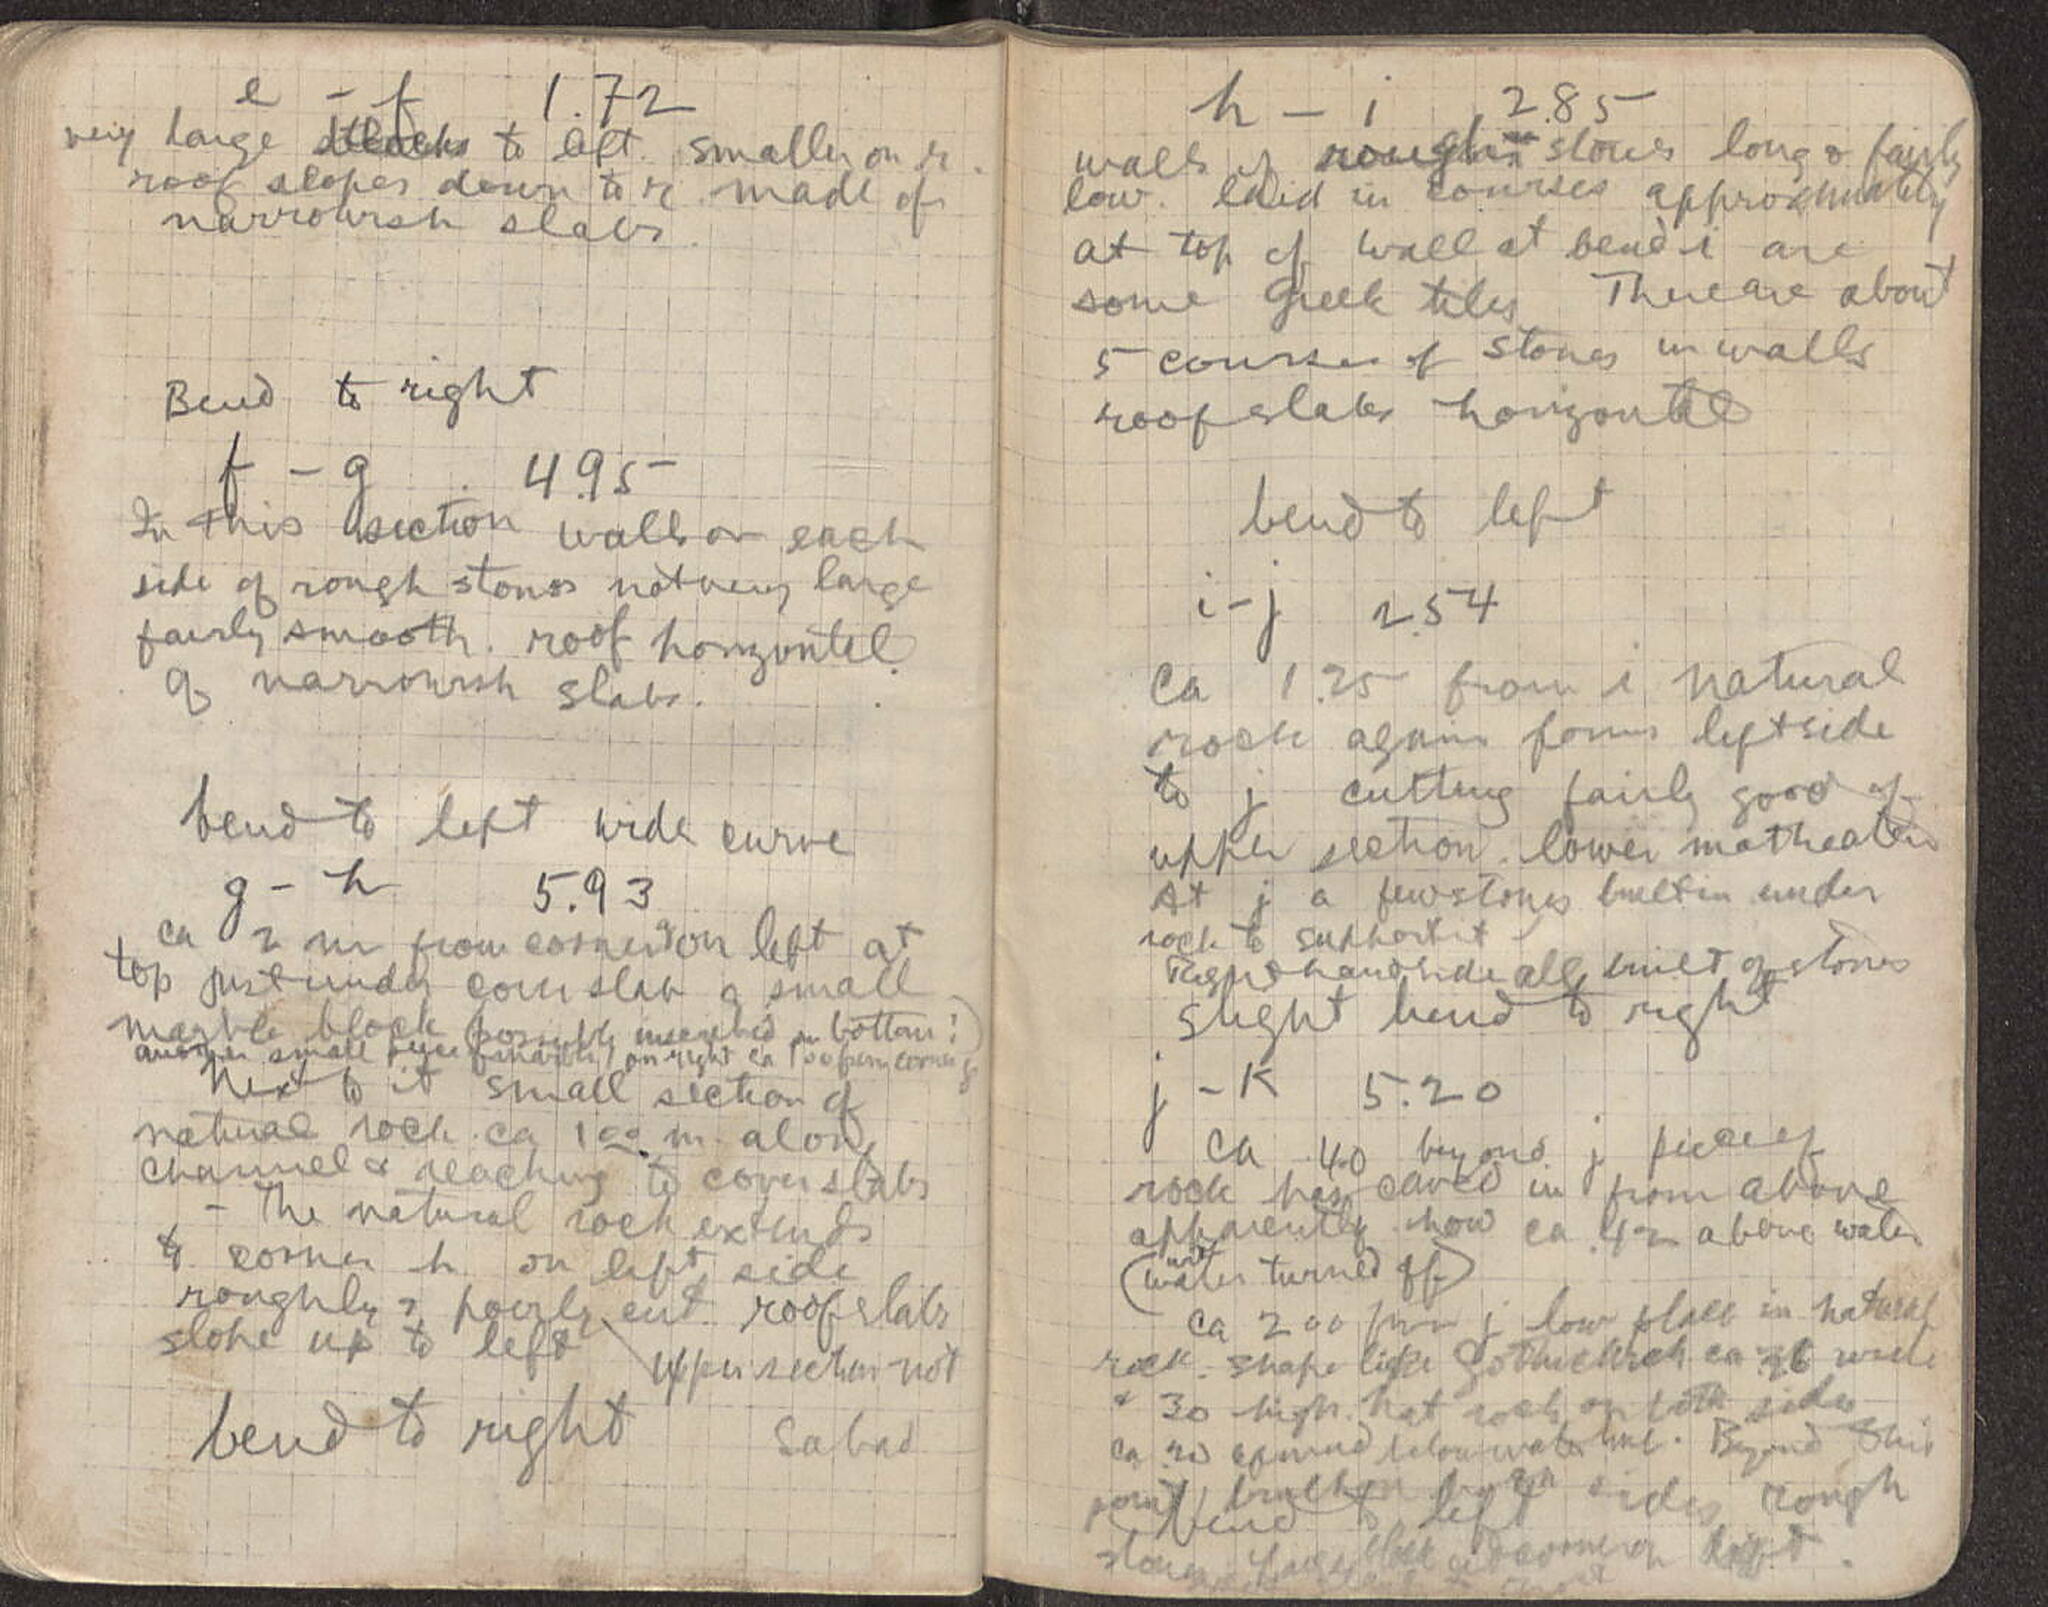 e - f 1.72
very large blocks to left. smaller on r.
roof slopes down to r. made of
narrowish slabs.
Bend to right
f - g 4.95
In this section walls on each
side of rough stones not very large
fairly smooth. roof horizontal
of narrowish slabs.
bend to left wide curve
g - h 5.93
ca 2 m from corner g on left at
top just under cover slab a small
marble block (possibly inscribed on bottom!)
another small piece of marble, on right ca 1.50 from corner g
Next to it small section of
natural rock ca 1 00 m along
channel & reaching to cover slabs
- The natural rock extends
to corner h on left side
roughly & poorly cut. roof slabs
slope up to left
upper section not
bend to right
h - i 2.85
walls of rough stones long & fairly
low. laid in courses approximately
at top of wall at bend i are
some Greek tiles There are about
5 courses of stones in walls
roof slabs horizontal
bend to left
i - j 2.54
Ca 1.25 from i natural
rock again forms left side
to j cutting fairly good of
upper section. lower not
At j a few stones built in under
rock to support it
Right hand side all built of stones
slight bend to right
j - K 5.20
Ca .40 beyond j piece of
rock has caved in from above
apparently now ca .42 above water
(water not turned off)
Ca 2 00 from j low place in natural
rock. shape like Gothic arch ca wide
& 30 high. nat rock on both sides
ca below water line. Beyond this
point, both sides rough
bend to left
stones. corner on right.